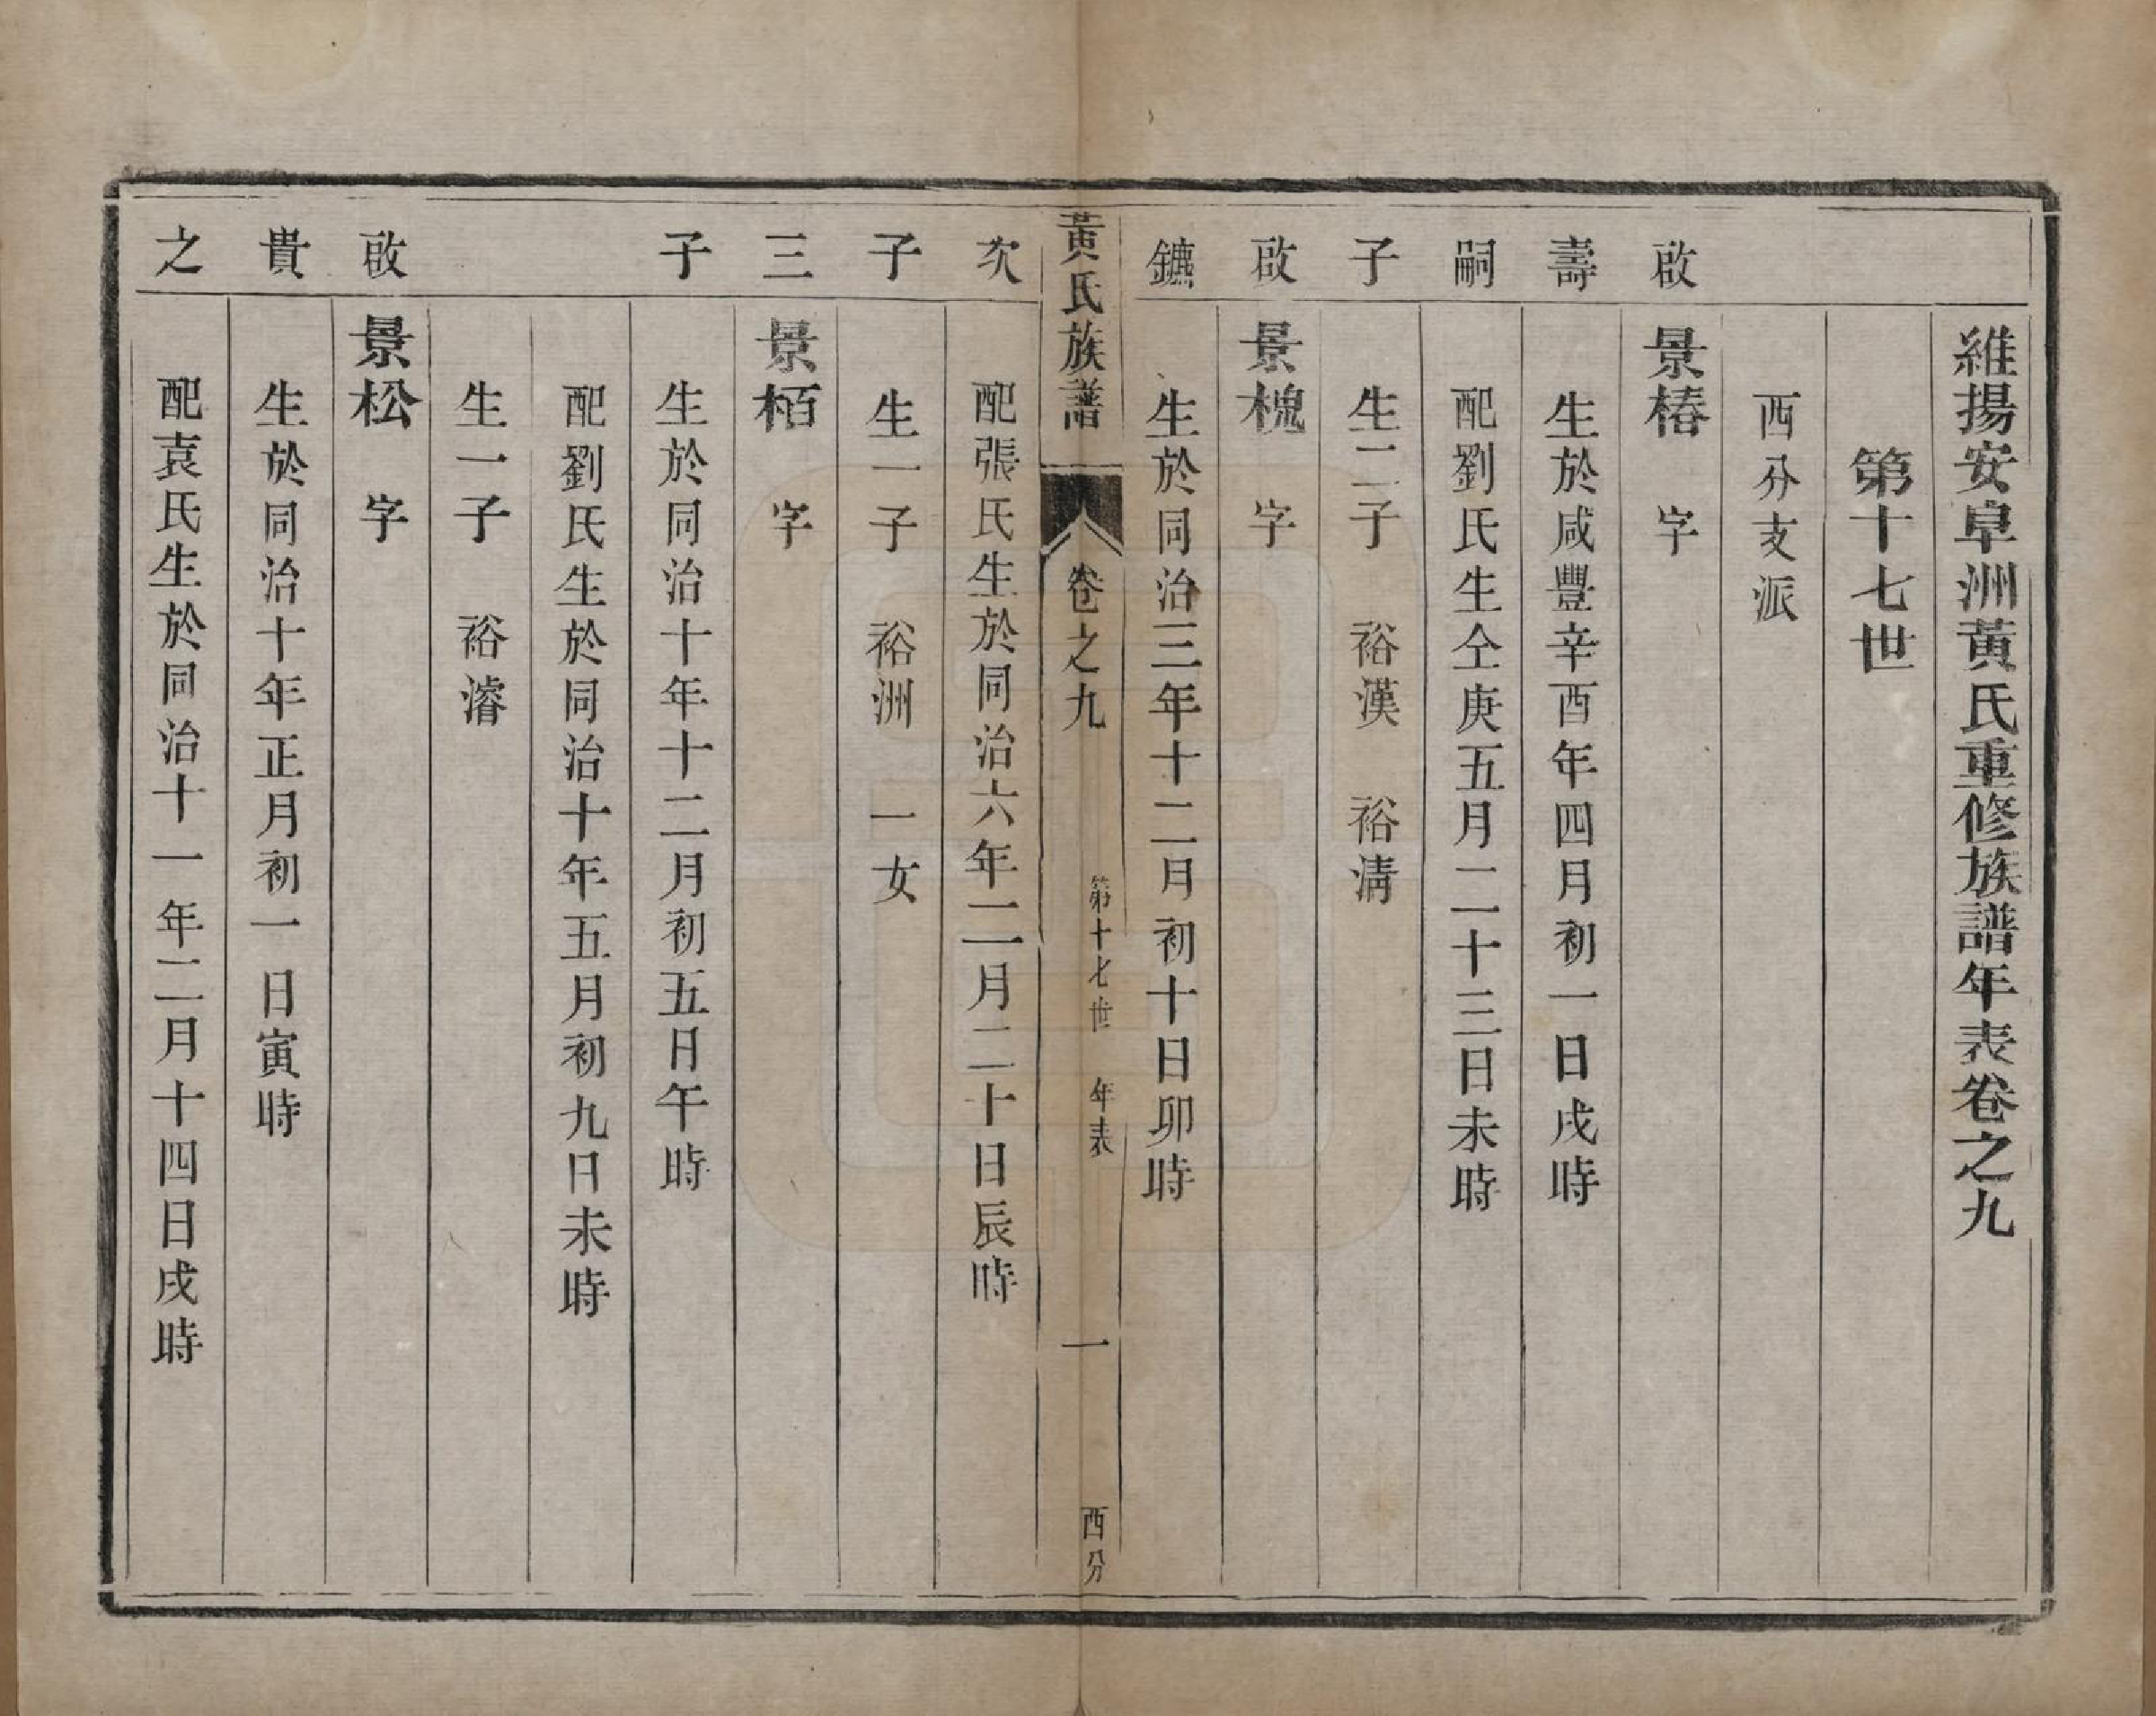 維揚安阜洲黃氏重修族譜年表卷之九
第十七世
西分支派
啟
景椿　字
壽
生於咸豐辛酉年四月初一日戌時
嗣
配劉氏生仝庚五月二十三日未時
子
生二子　裕漢　裕清
啟
景槐　字
鑣
生於同治三年十二月初十日卯時
黃氏族譜　卷之九　第十七世　年表　一　西分
次
配張氏生於同治六年二月二十日辰時
子
生一子　裕洲　一女
三
景栢　字
子
生於同治十年十二月初五日午時
配劉氏生於同治十年五月初九日未時
生一子　裕濬
啟
景松　字
貴
生於同治十年正月初一日寅時
之
配袁氏生於同治十一年二月十四日戌時